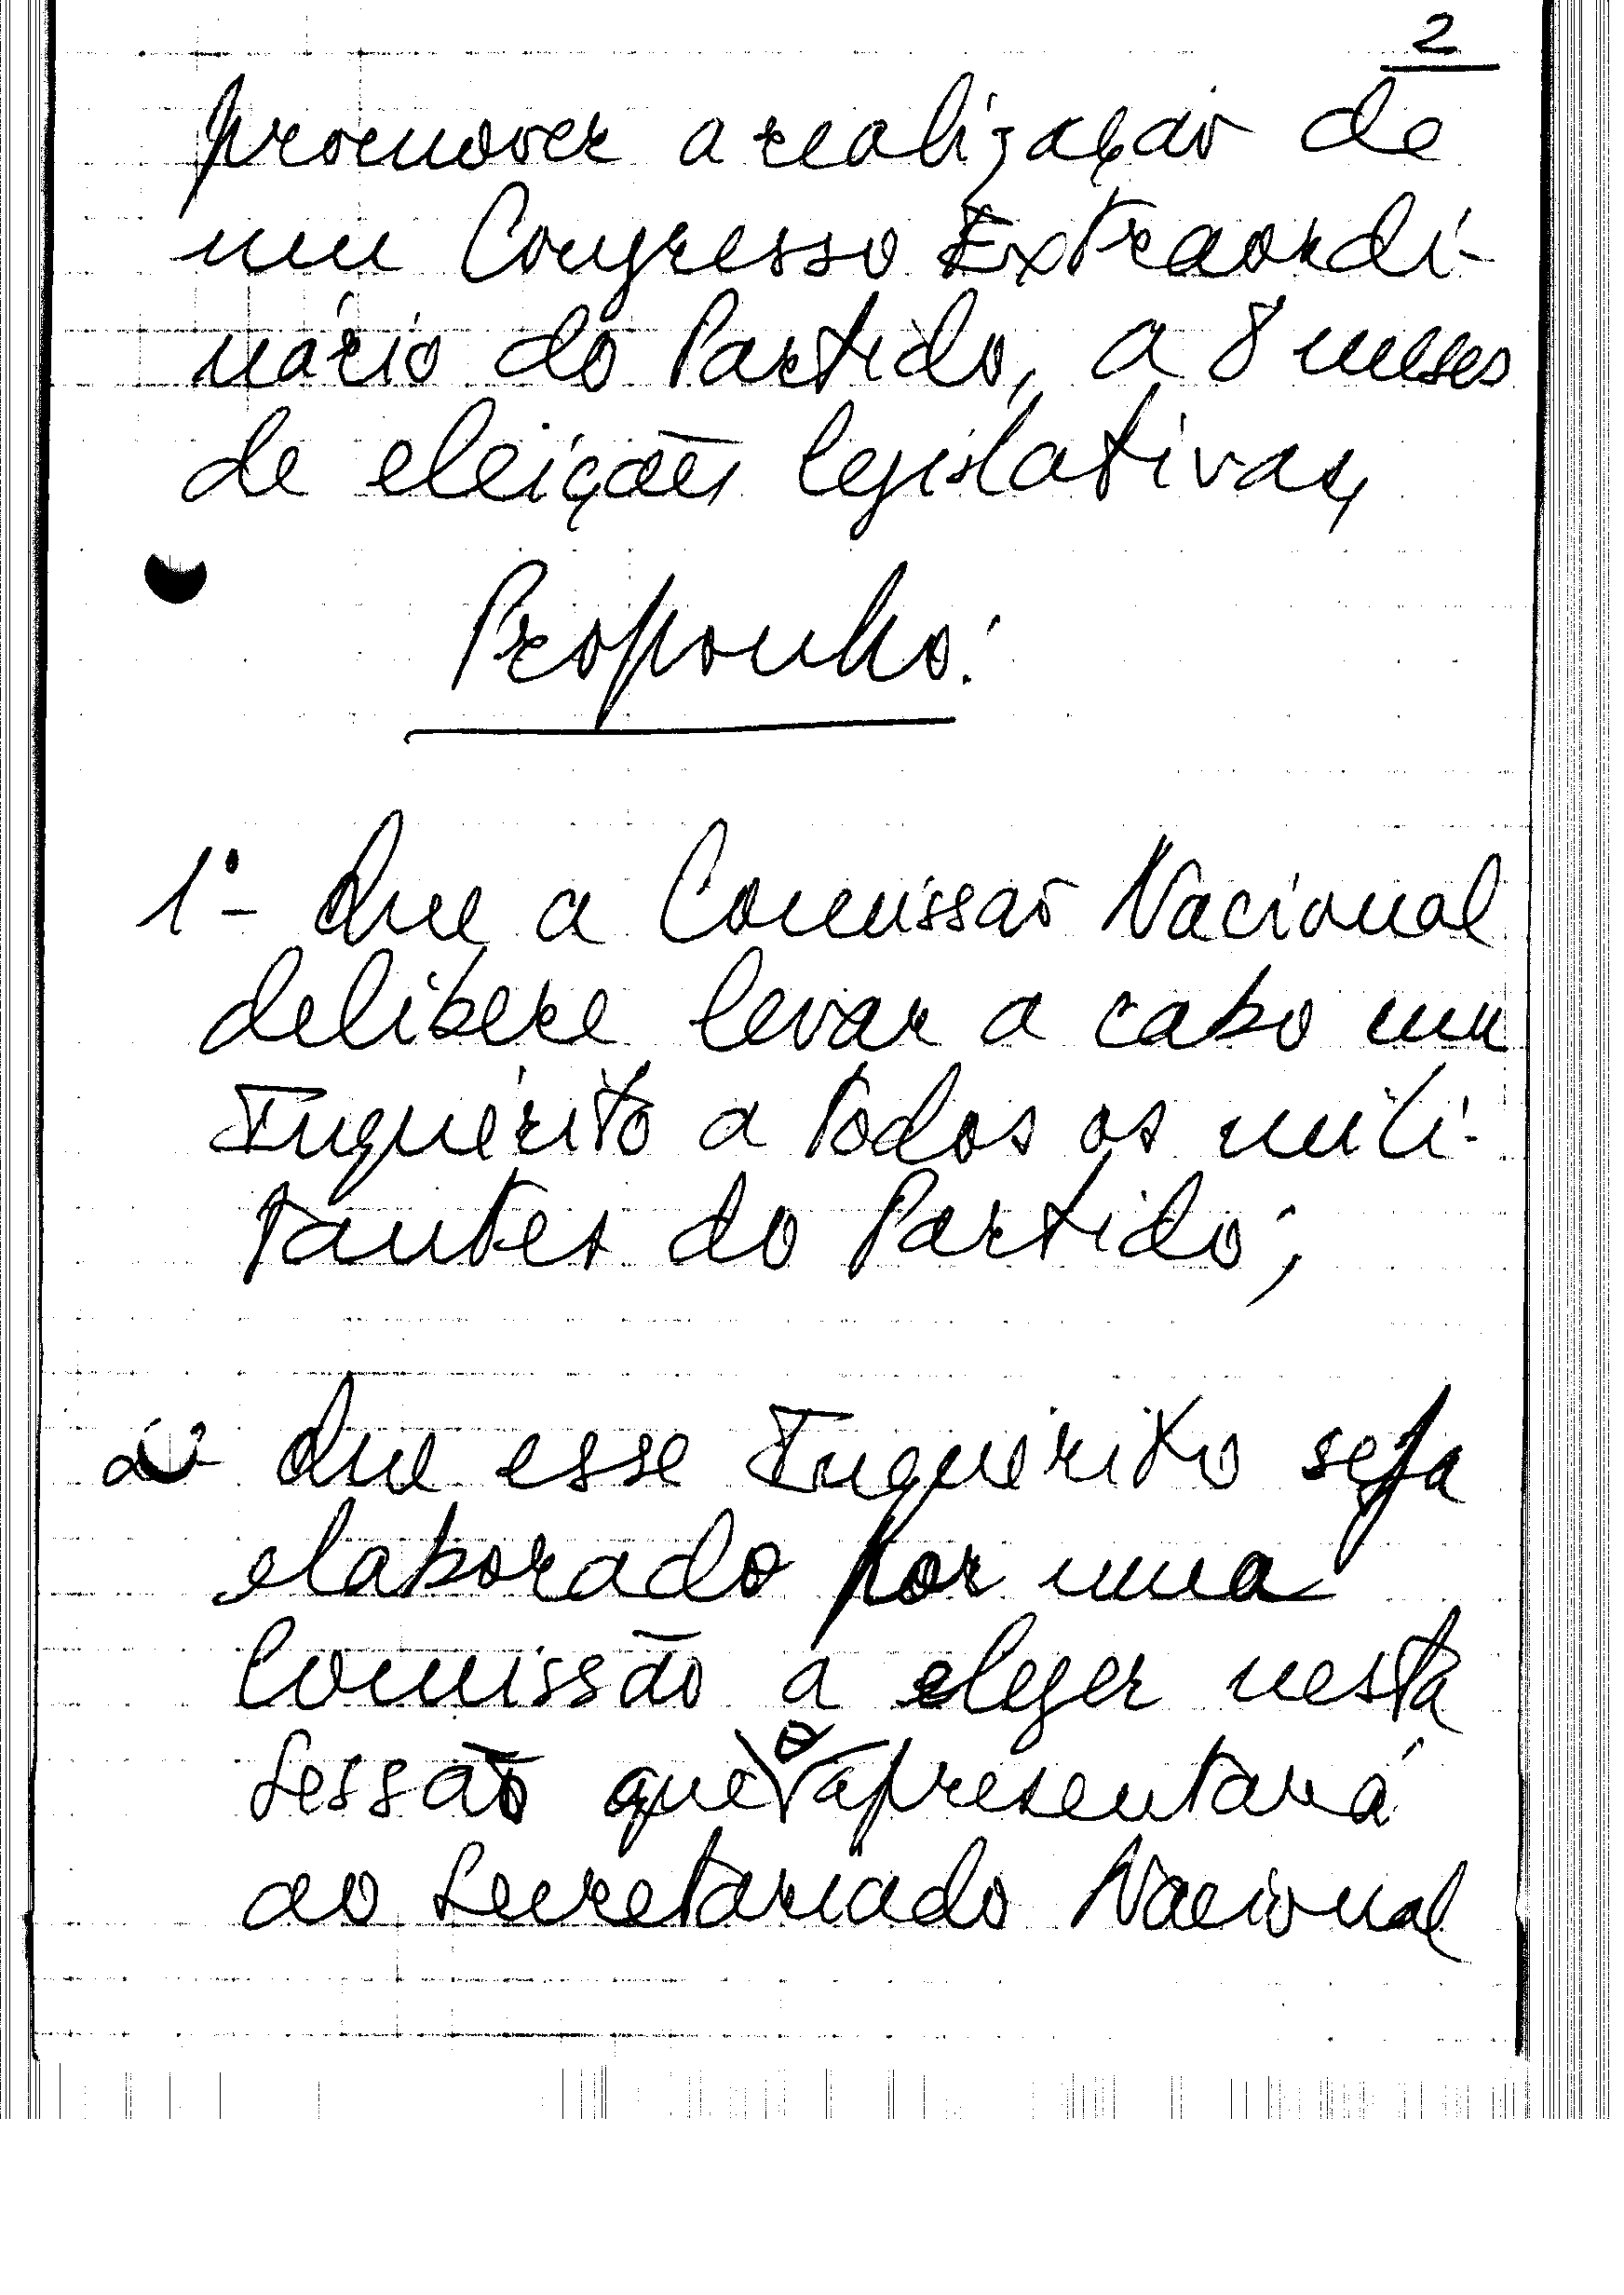 2
promover a realização de
um Congresso Extraordi-
nário do Partido, a 8 meses
de eleições legislativas,
Proponho:
1º- Que a Comissão Nacional
delibere levar a cabo um
Inquérito a todos os mili-
tantes do Partido;
2º- Que esse Inquérito seja
elaborado por uma
Comissão a eleger nesta
Sessão que o apresentará
ao Secretariado Nacional